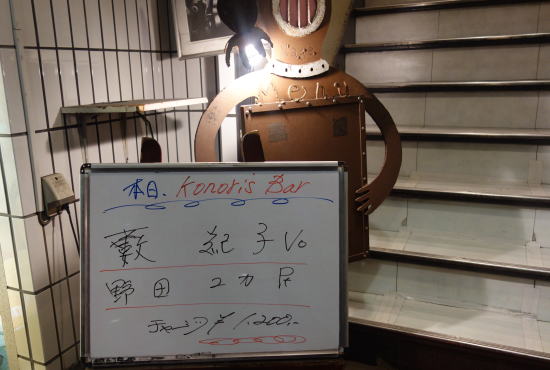 Menu
本日. Konori's Bar
藪 紀子 Vo
野田 ユカ P.
チャージ ¥1,200.-